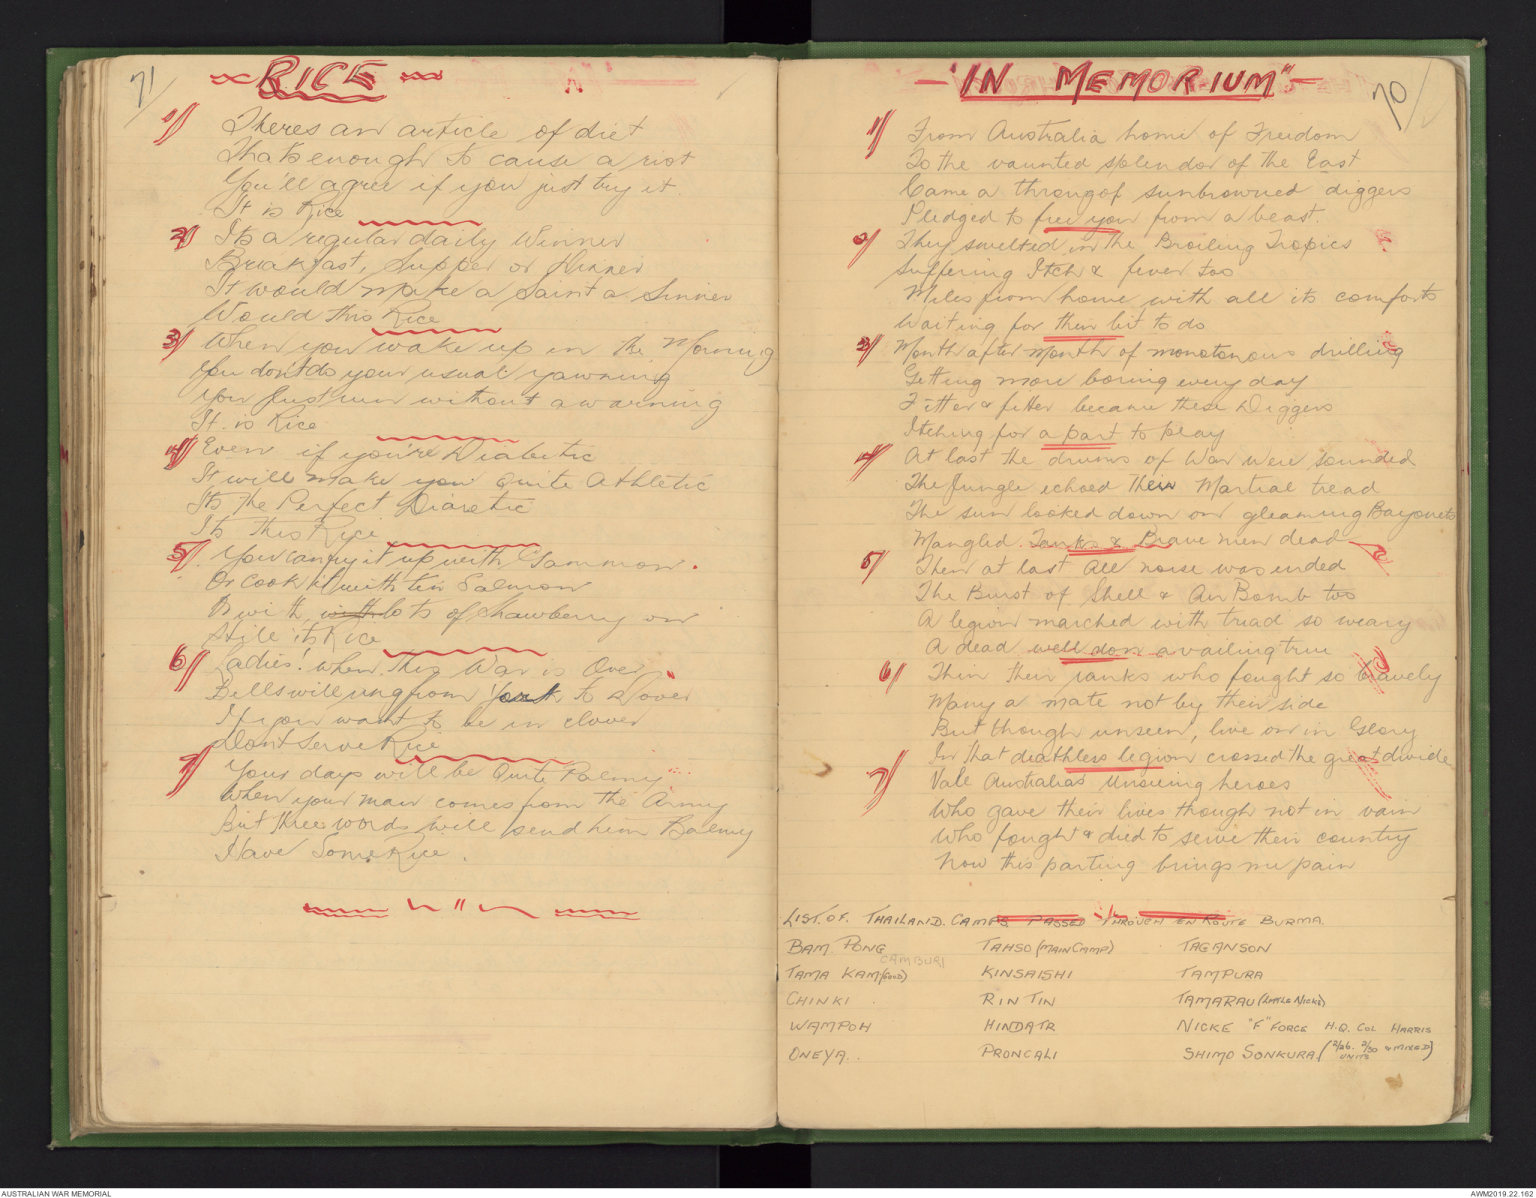 71
RICE
1/ Theres an article of diet
Thats enough to cause a riot
You'll agree if you just try it.
It is Rice
2/ Its a regular daily Winner
Breakfast, Supper or Dinner
It would make a Saint a Sinner
Would this Rice
3/ When you wake up in the Morning
You dont do your usual yawning
You just run without a warning
It is Rice
4/ Even if you're Diabetic
It will make you quite Athletic
Its the Perfect Diaretic
Its this Rice
5/ You can fry it up with Gammon.
Or cook it with tin Salmon
Or with with lots of strawberry on
Still its Rice
6/ Ladies! when this War is Over
Bells will ring from York to Dover
If you want to be in clover
Dont Serve Rice
7/ Your days will be Quite Palmy
When your man comes from the Army
But three words will send him Balmy
Have Some Rice.
"IN MEMORIUM"
70
1/ From Australia home of Freedom
To the vaunted splendor of the East
Came a throng of sunbrowned diggers
Pledged to free you from a beast.
2/ They swelted in the Broiling Tropics
Suffering Itch & fever too
Miles from home with all its comforts
Waiting for their bit to do
3/ Month after month of monotonous drilling
Getting more boring every day
Fitter & fitter became these Diggers
Itching for a part to play
4/ At last the drums of War were sounded
The Jungle echoed their Martial tread
The sun looked down on gleaming Bayonets
Mangled Tanks & Brave men dead
5/ Then at last all noise was ended
The Burst of Shell & Air Bomb too
A legion marched with tread so weary
A dead well don availing true
6/ Thin their ranks who fought so bravely
Many a mate not by their side
But though unseen, live on in Glory
In that deathless legion crossed the great divide
7/ Vale Australias Unsung heroes
Who gave their lives though not in vain
Who fought & died to serve their country
Now this parting brings me pain
LIST OF THAILAND CAMPS PASSED THROUGH EN ROUTE BURMA.
BAM PONG TAHSO (MAIN CAMP) TAGANSON
CAMBURI
TAMA KAM (GOOD) KINSAISHI TAMPURA
CHINKI RIN TIN TAMARAU (LITTLE NICKE)
WAMPOH HINDATR NICKE "F" FORCE H.Q. COL HARRIS
ONEYA.. PRONCALI SHIMO SONKURA (2/26. 2/30 & MIXED UNITS)
AUSTRALIAN WAR MEMORIAL
AWM2019.22.162